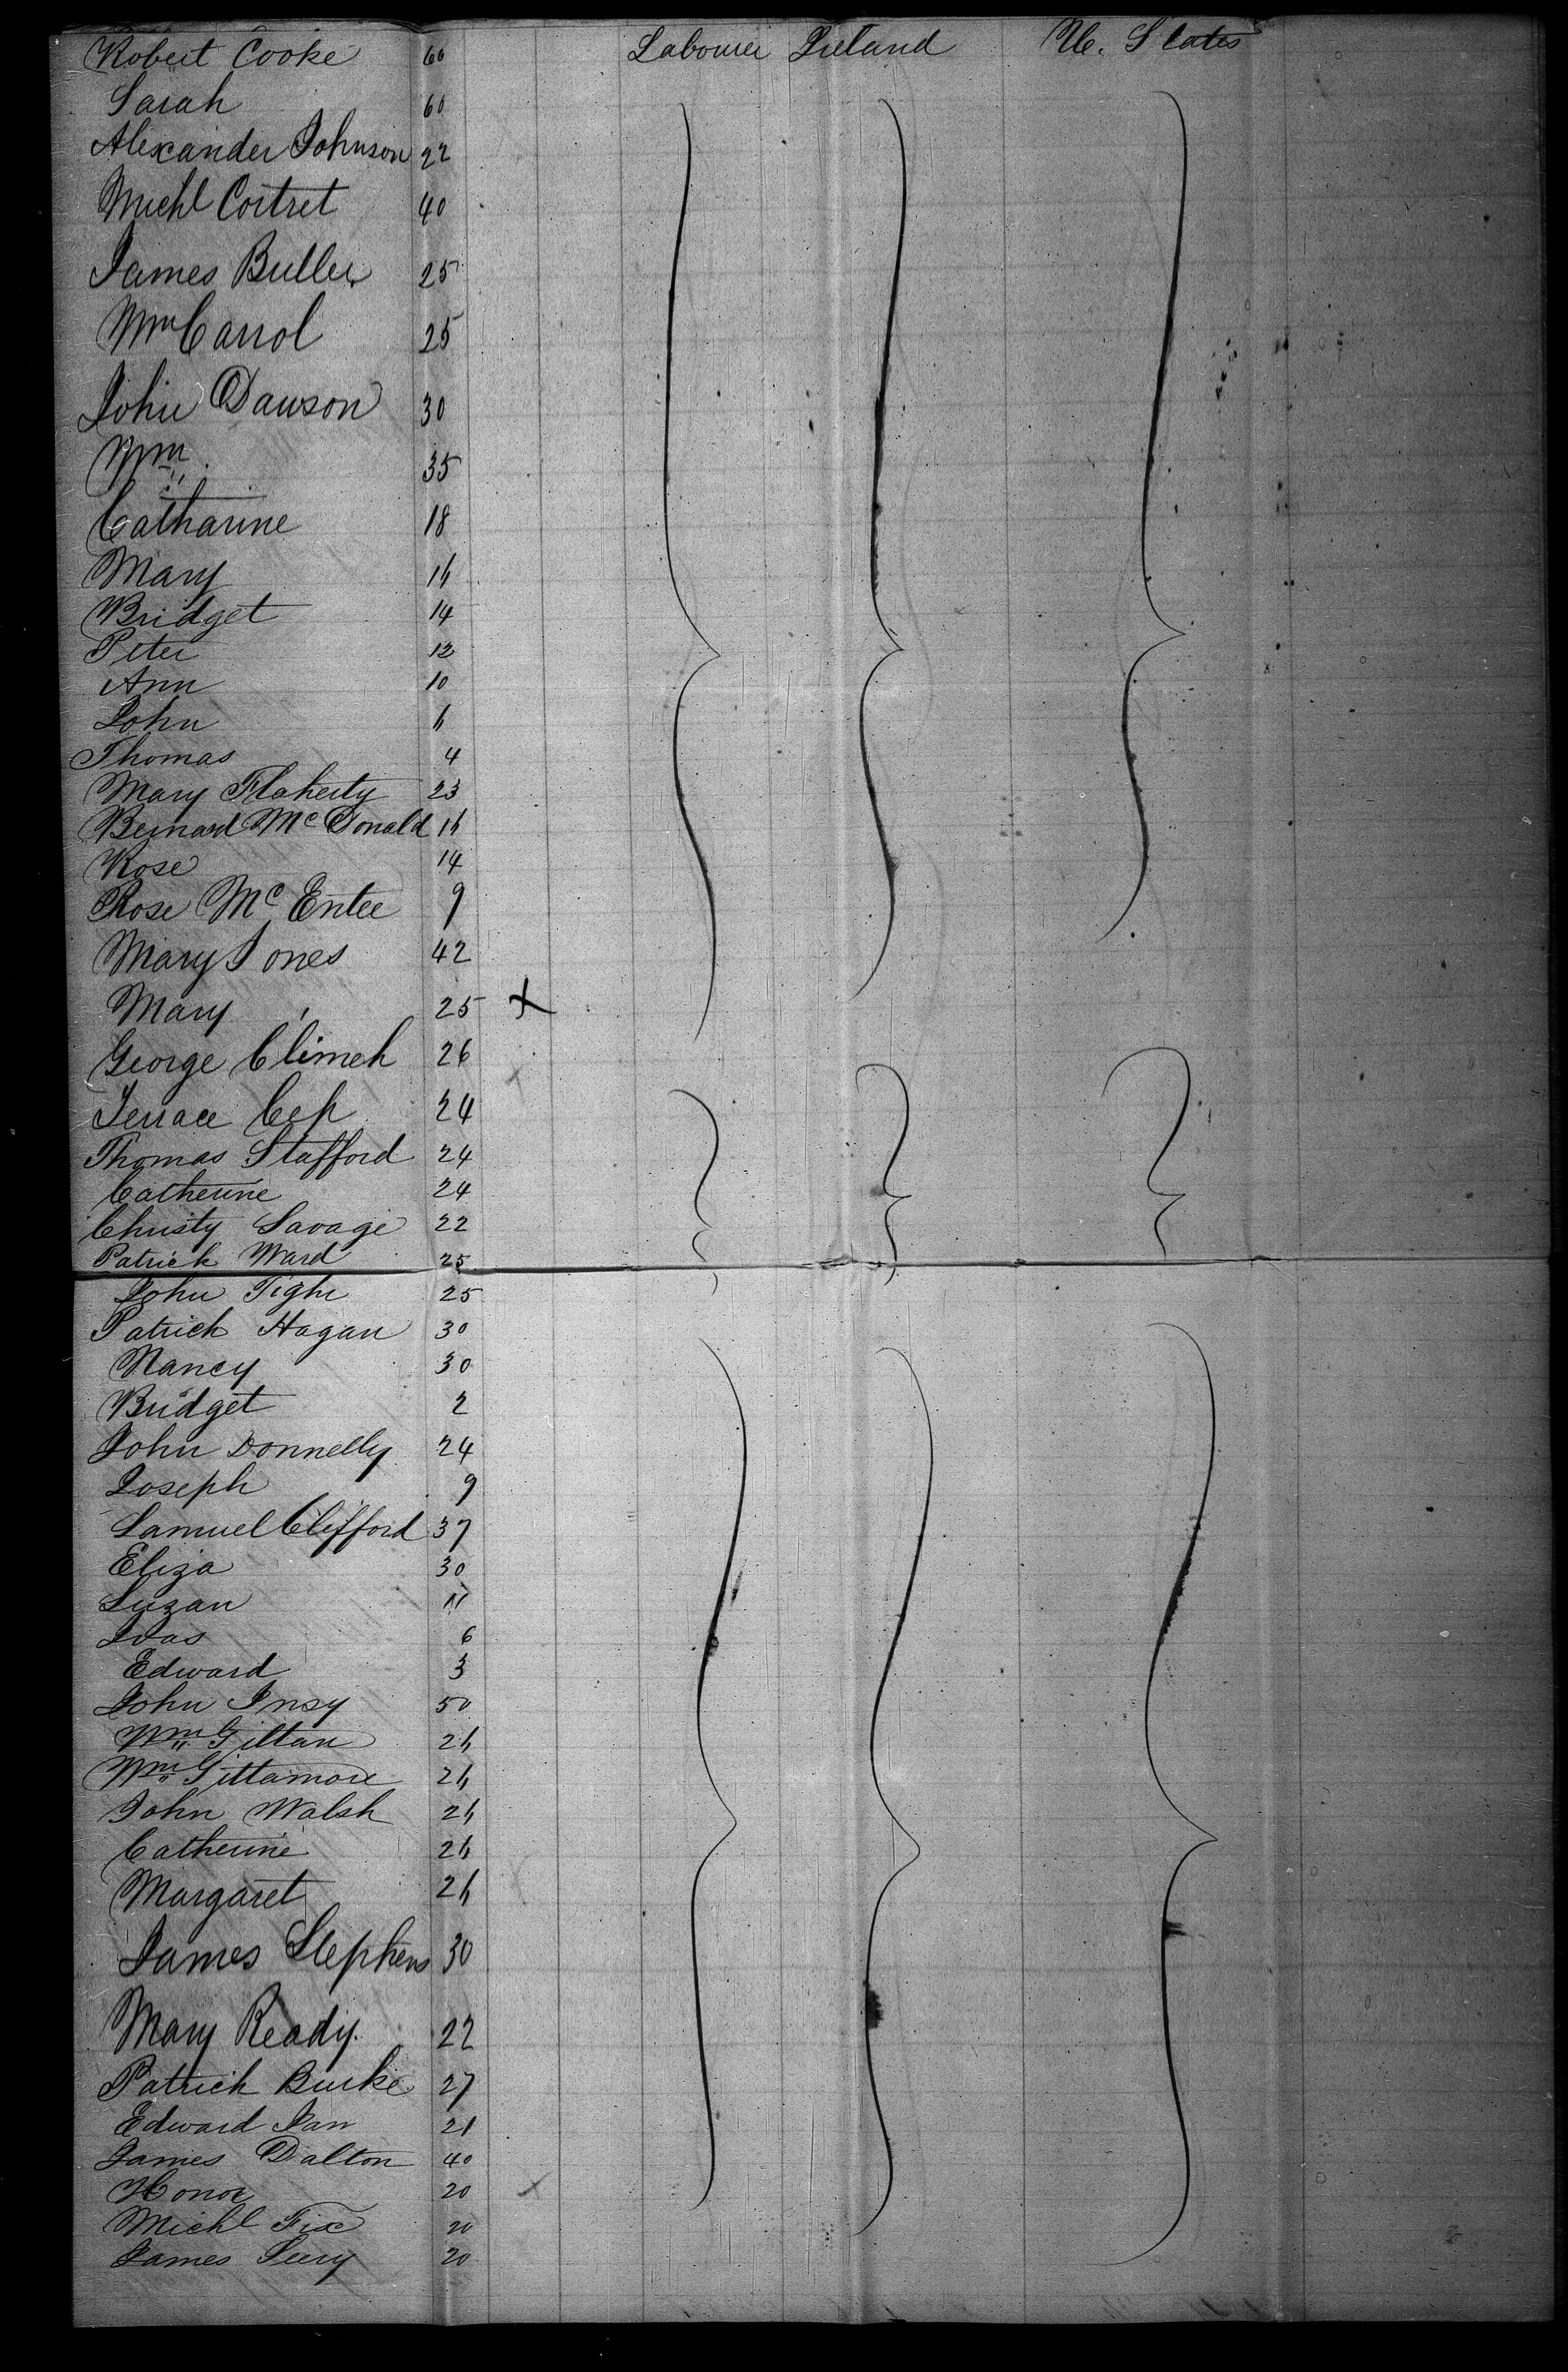 Robert Cooke 60 Labourer Ireland U. States
Sarah 60
Alexander Johnson 22
Michl Cortret 40
James Butler 25
Wm Carrol 25
John Dawson 30
Wm " 35
Catharine 18
Mary 16
Bridget 14
Peter 12
Ann 10
John 6
Thomas 4
Mary Flaherty 23
Bernard McDonald 16
Rose 14
Rose McEntee 9
Mary Jones 42
Mary 25 X
George Climeh 26
Terrace 24
Thomas Stafford 24
Catherine 24
Christy Savage 22
Patrick Ward 25
John Tighe 25
Patrick Hagan 30
Nancy 30
Bridget 2
John Donnelly 24
Joseph 9
Samuel Clifford 37
Eliza 30
Suzan 11
6
Edward 3
John 50
Wm Giltan 26
Wm Gittamore 26
John Walsh 26
Catherine 26
Margaret 26
James Stephens 30
Mary Ready. 22
Patrick Burke 27
Edward 21
James Dalton 40
Honor 20
Michl Fix 20
James Seery 20